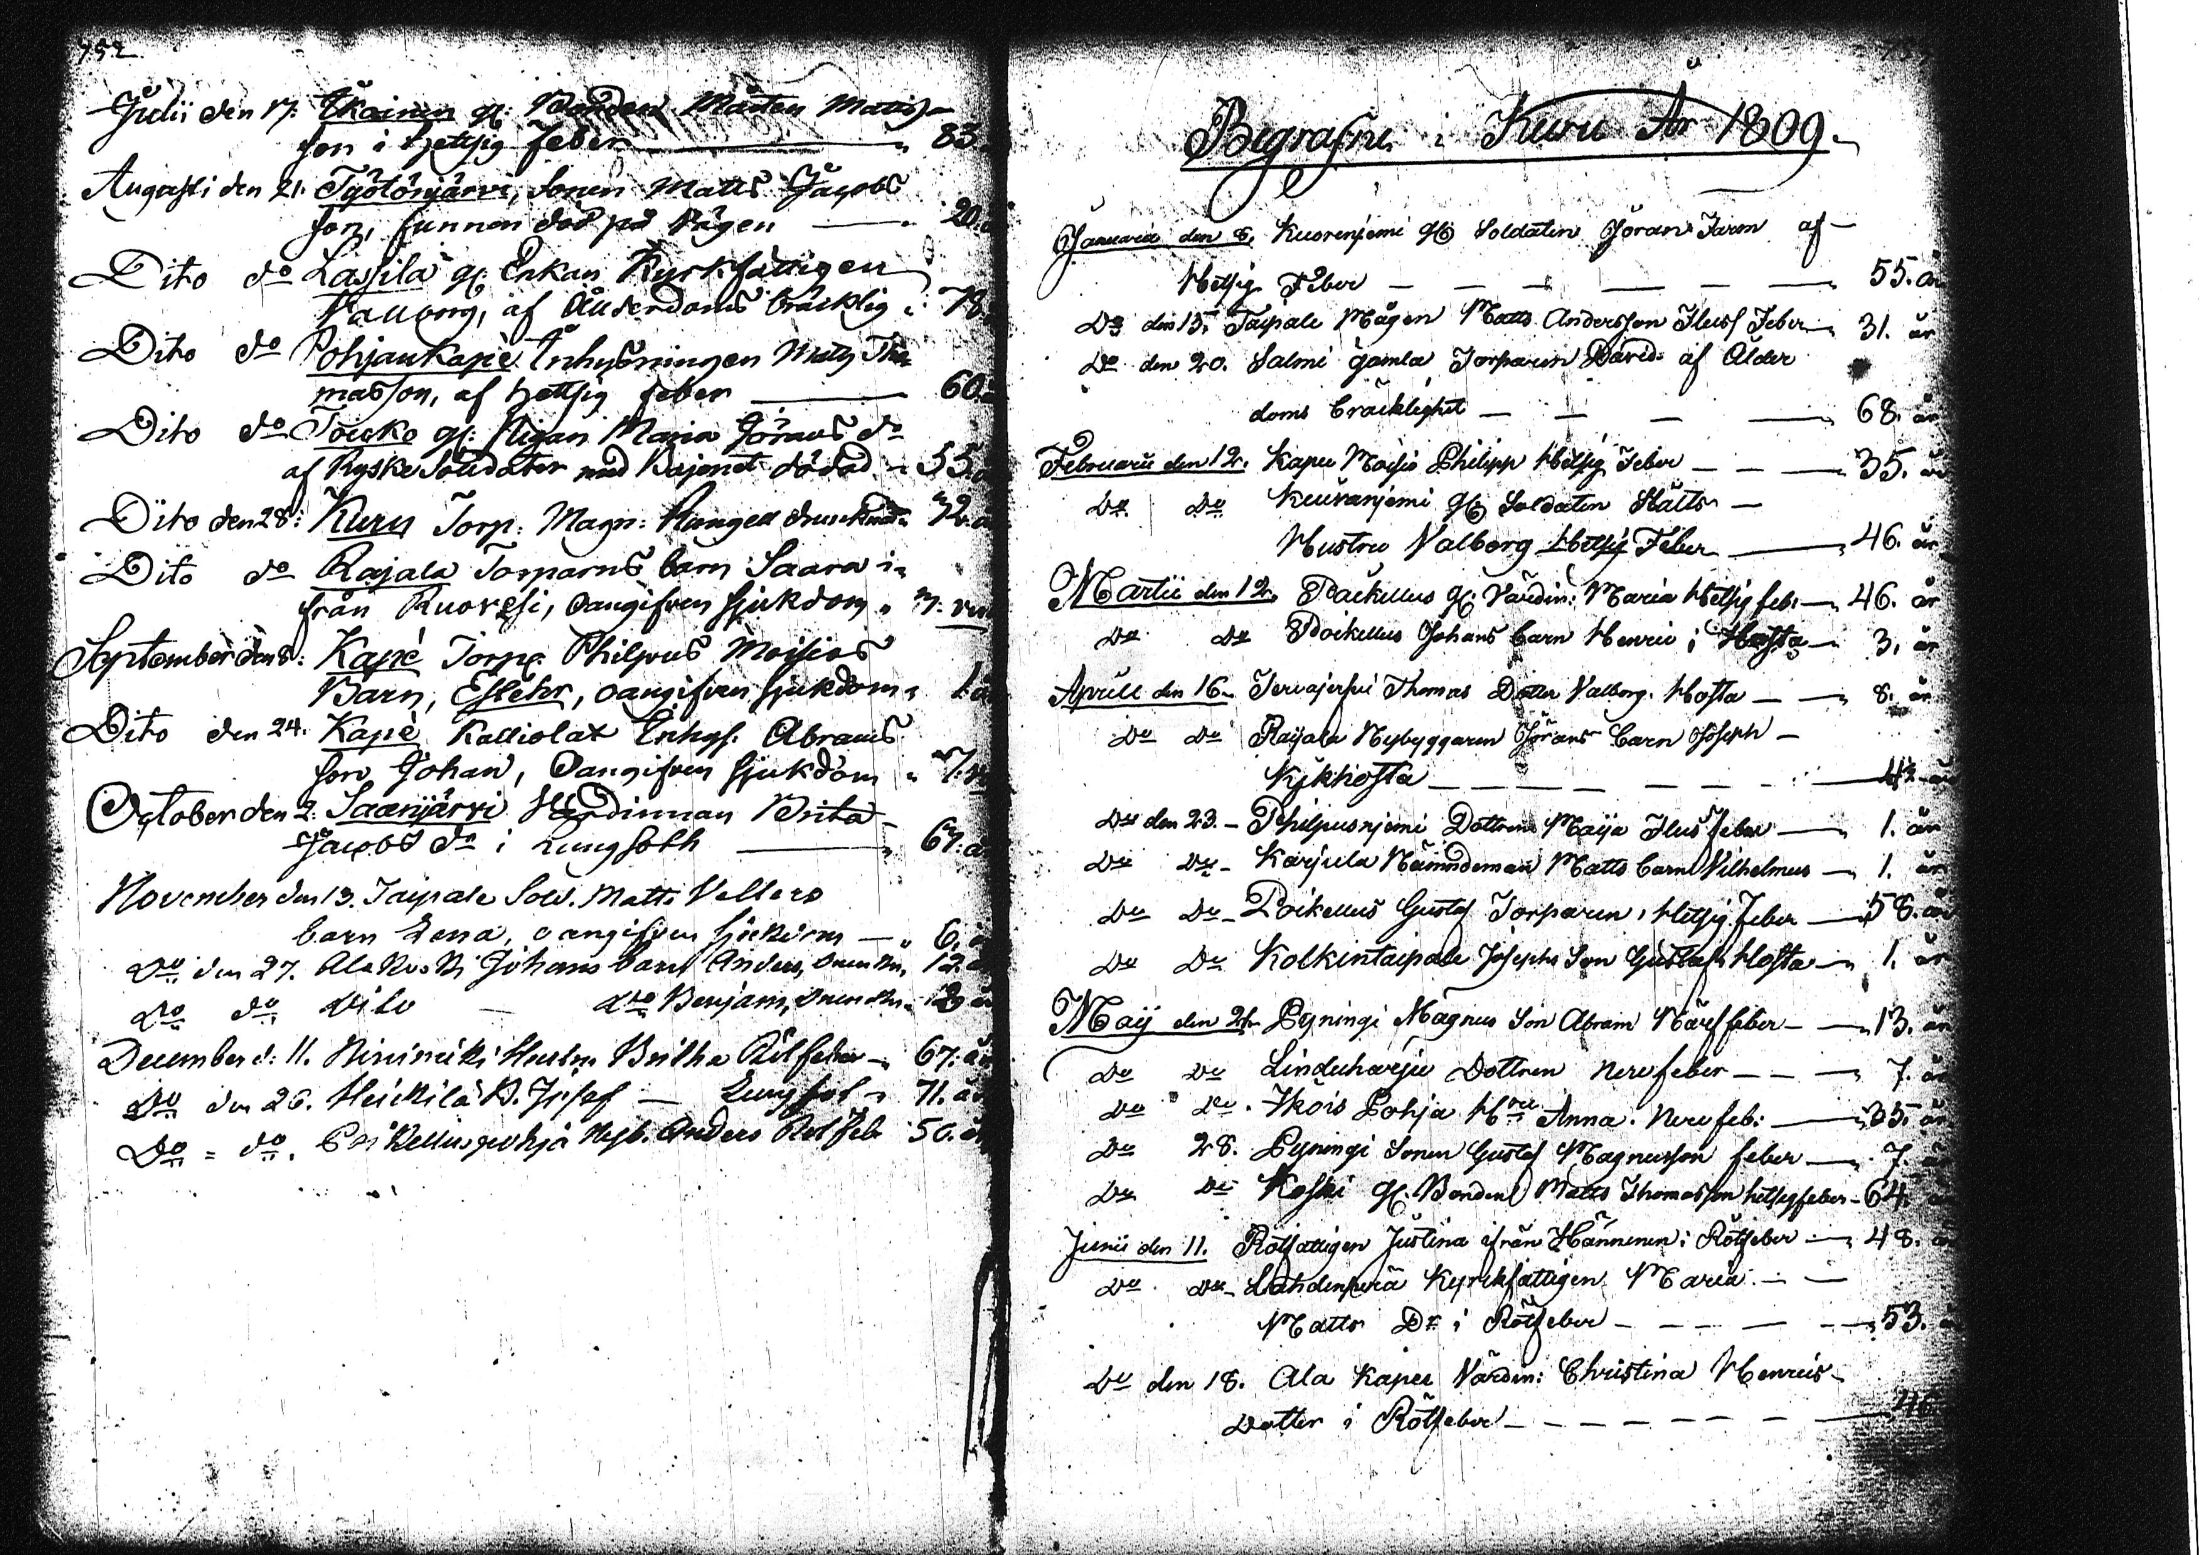 752
Julii den 17. Ikoinen gl: Bonden Mårten Matts-
son i hettsig feber " 83.
Augusti den 21. Työtönjärvi, Sonen Matts Jacobs
son, funnen död på Vägen " 20.
Dito do Lassila gl. Enkan Kyrkfattigen
Vallborg, af Ålderdoms bräcklig: 78.
Dito do Pohjankapè Inhysningen Matts Tho-
masson, af hettsig feber 60.
Dito do Touko gl: Pigan Maria Görans dr
af Ryske Soldater med Bajonet dödad " 55.
Dito den 28: Kuru Torp: Magn: Rangell drunknad " 72.
Dito do Rajala Torparns barn Saara i
från Ruovesi, oangifven sjukdom " 7. v
September den 8: Kapè Torp. Philpus Moisios
Barn, Esther, oangifven sjukdom " 1. å
Dito den 24. Kapè Kalliolax Inhys. Abrams
son Johan, Oangifven sjukdom " 7.
October den 2. Saarijärvi Värdinnan Brita
Jacobs dr i Lungsoth " 67. å
November den 13. Taipale Sold. Matts Vellers
barn Lena, oangifven sjukdom " 6.
Do den 27. Ala Koski Johans barn Anders, drunkn. 12.
Do do Dito do Benjam, drunkn.
December d: 11. Niinimäki Hustr. Britha Rötfeber " 67. år
Do den 26. Heickilä B. Josef Lungsot " 71. år
Do = do. Poikelluspohja Nyb. Anders Rötfeb. 50. år
Begrafne i Kuru År 1809.
Januarii den 8. Kuorenjemi gl. Soldaten Göran Jarm af
Hetsig Feber 55. år
Do den 15. Taipale Mågen Matts Andersson Flussfeber " 31. år
Do den 20. Salmi gamla Torparen David af Ålder
doms bräcklighet " 68. år
Februarii den 12. Kapee Moisio Philipp Hetsig Feber 35. år
Do Do gl. Soldaten Stålts
Hustru Valborg Hetsig Feber " 46. år
Martii den 12. Poikellus gl. Värdin: Maria Hetsig feb: 46. år
Do Do Poikellus Johans barn Henric i Hosta 3. år
Aprill den 16. Thomas Dotter Valborg. Hosta " 8. år
Do Do Raijala Nybyggaren Görans barn Joseph
Kikhosta år
Do den 23. Philpusnjemi Dottren Maija Flusfeber " 1. år
Do Do Karjula Nämndeman Matts barn Vilhelmus 1. år
Do Do Poikellus Gustaf Torparen, Hetsig feber 58. år
Do Do Kolkintaipale Josephs Son Gustaf Hosta " 1. år
Maij den 21. Pyningi Magnus Son Abram Närffeber " 13. år
Do Do Linduharju Dottren Nervfeber " 7. år
Do Do Ikois Pohja Hru Anna. Nervfeb: 35. år
Do 28. Pyningi Sonen Gustaf Magnusson feber 7. år
Do Do Koski gl. Bonden Matts Thomasson hetsigfeber 64. år
Junii den 11. Rotfattigen Justina ifrån Hänninen i Rötfeber 48. år
Do Do Lahdenperä Kyrckfattigen Maria
Matts Dr i Rötfeber 53.
Do den 18. Ala Kapee Värdin: Christina Henrics
Dotter i Rötfeber 46